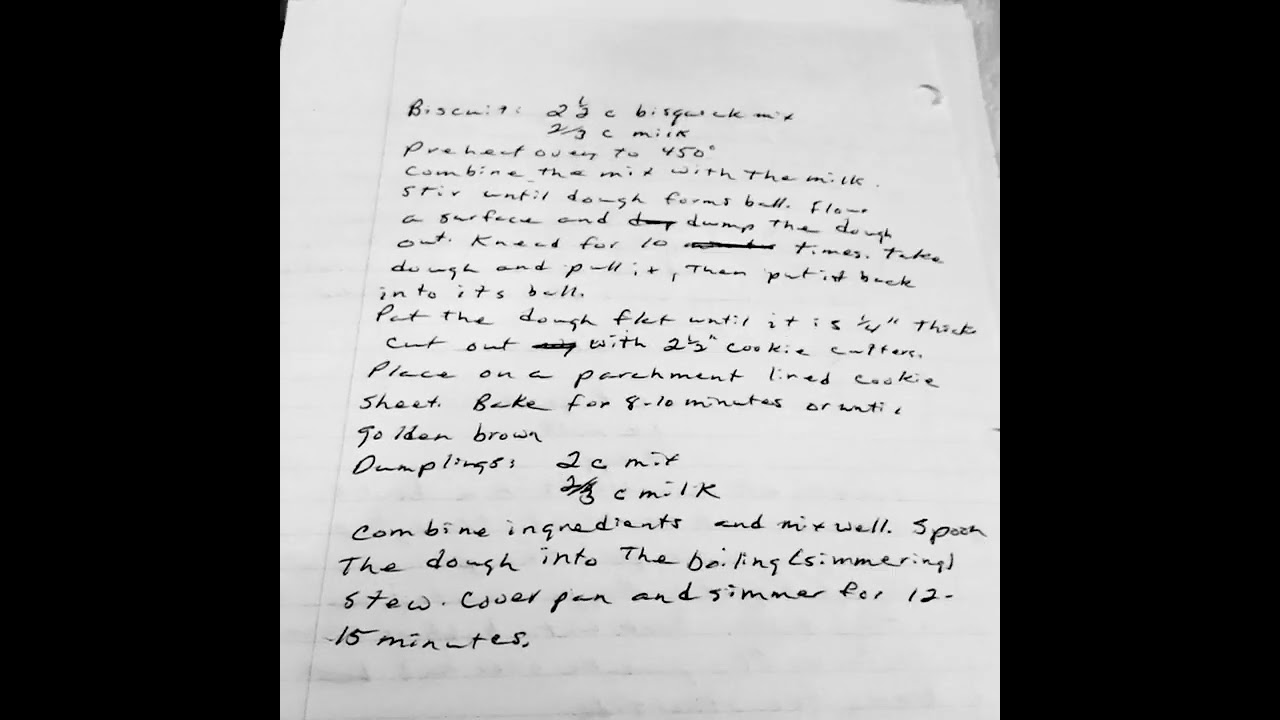 Biscuit: 2 1/2 c bisquick mix
2/3 c milk
Preheat oven to 450°
Combine the mix with the milk.
Stir until dough forms ball. Flour
a surface and dump the dough
out. Knead for 10 times. Take
dough and pull it, Then put it back
into its ball.
Pat the dough flat until it is 1/4" thick
Cut out with 2 1/2" cookie cutters.
Place on a parchment lined cookie
sheet. Bake for 8-10 minutes or until
golden brown
Dumplings: 2 c mix
2/3 c milk
Combine ingredients and mix well. Spoon
The dough into The boiling (simmering)
stew. Cover pan and simmer for 12-
15 minutes.